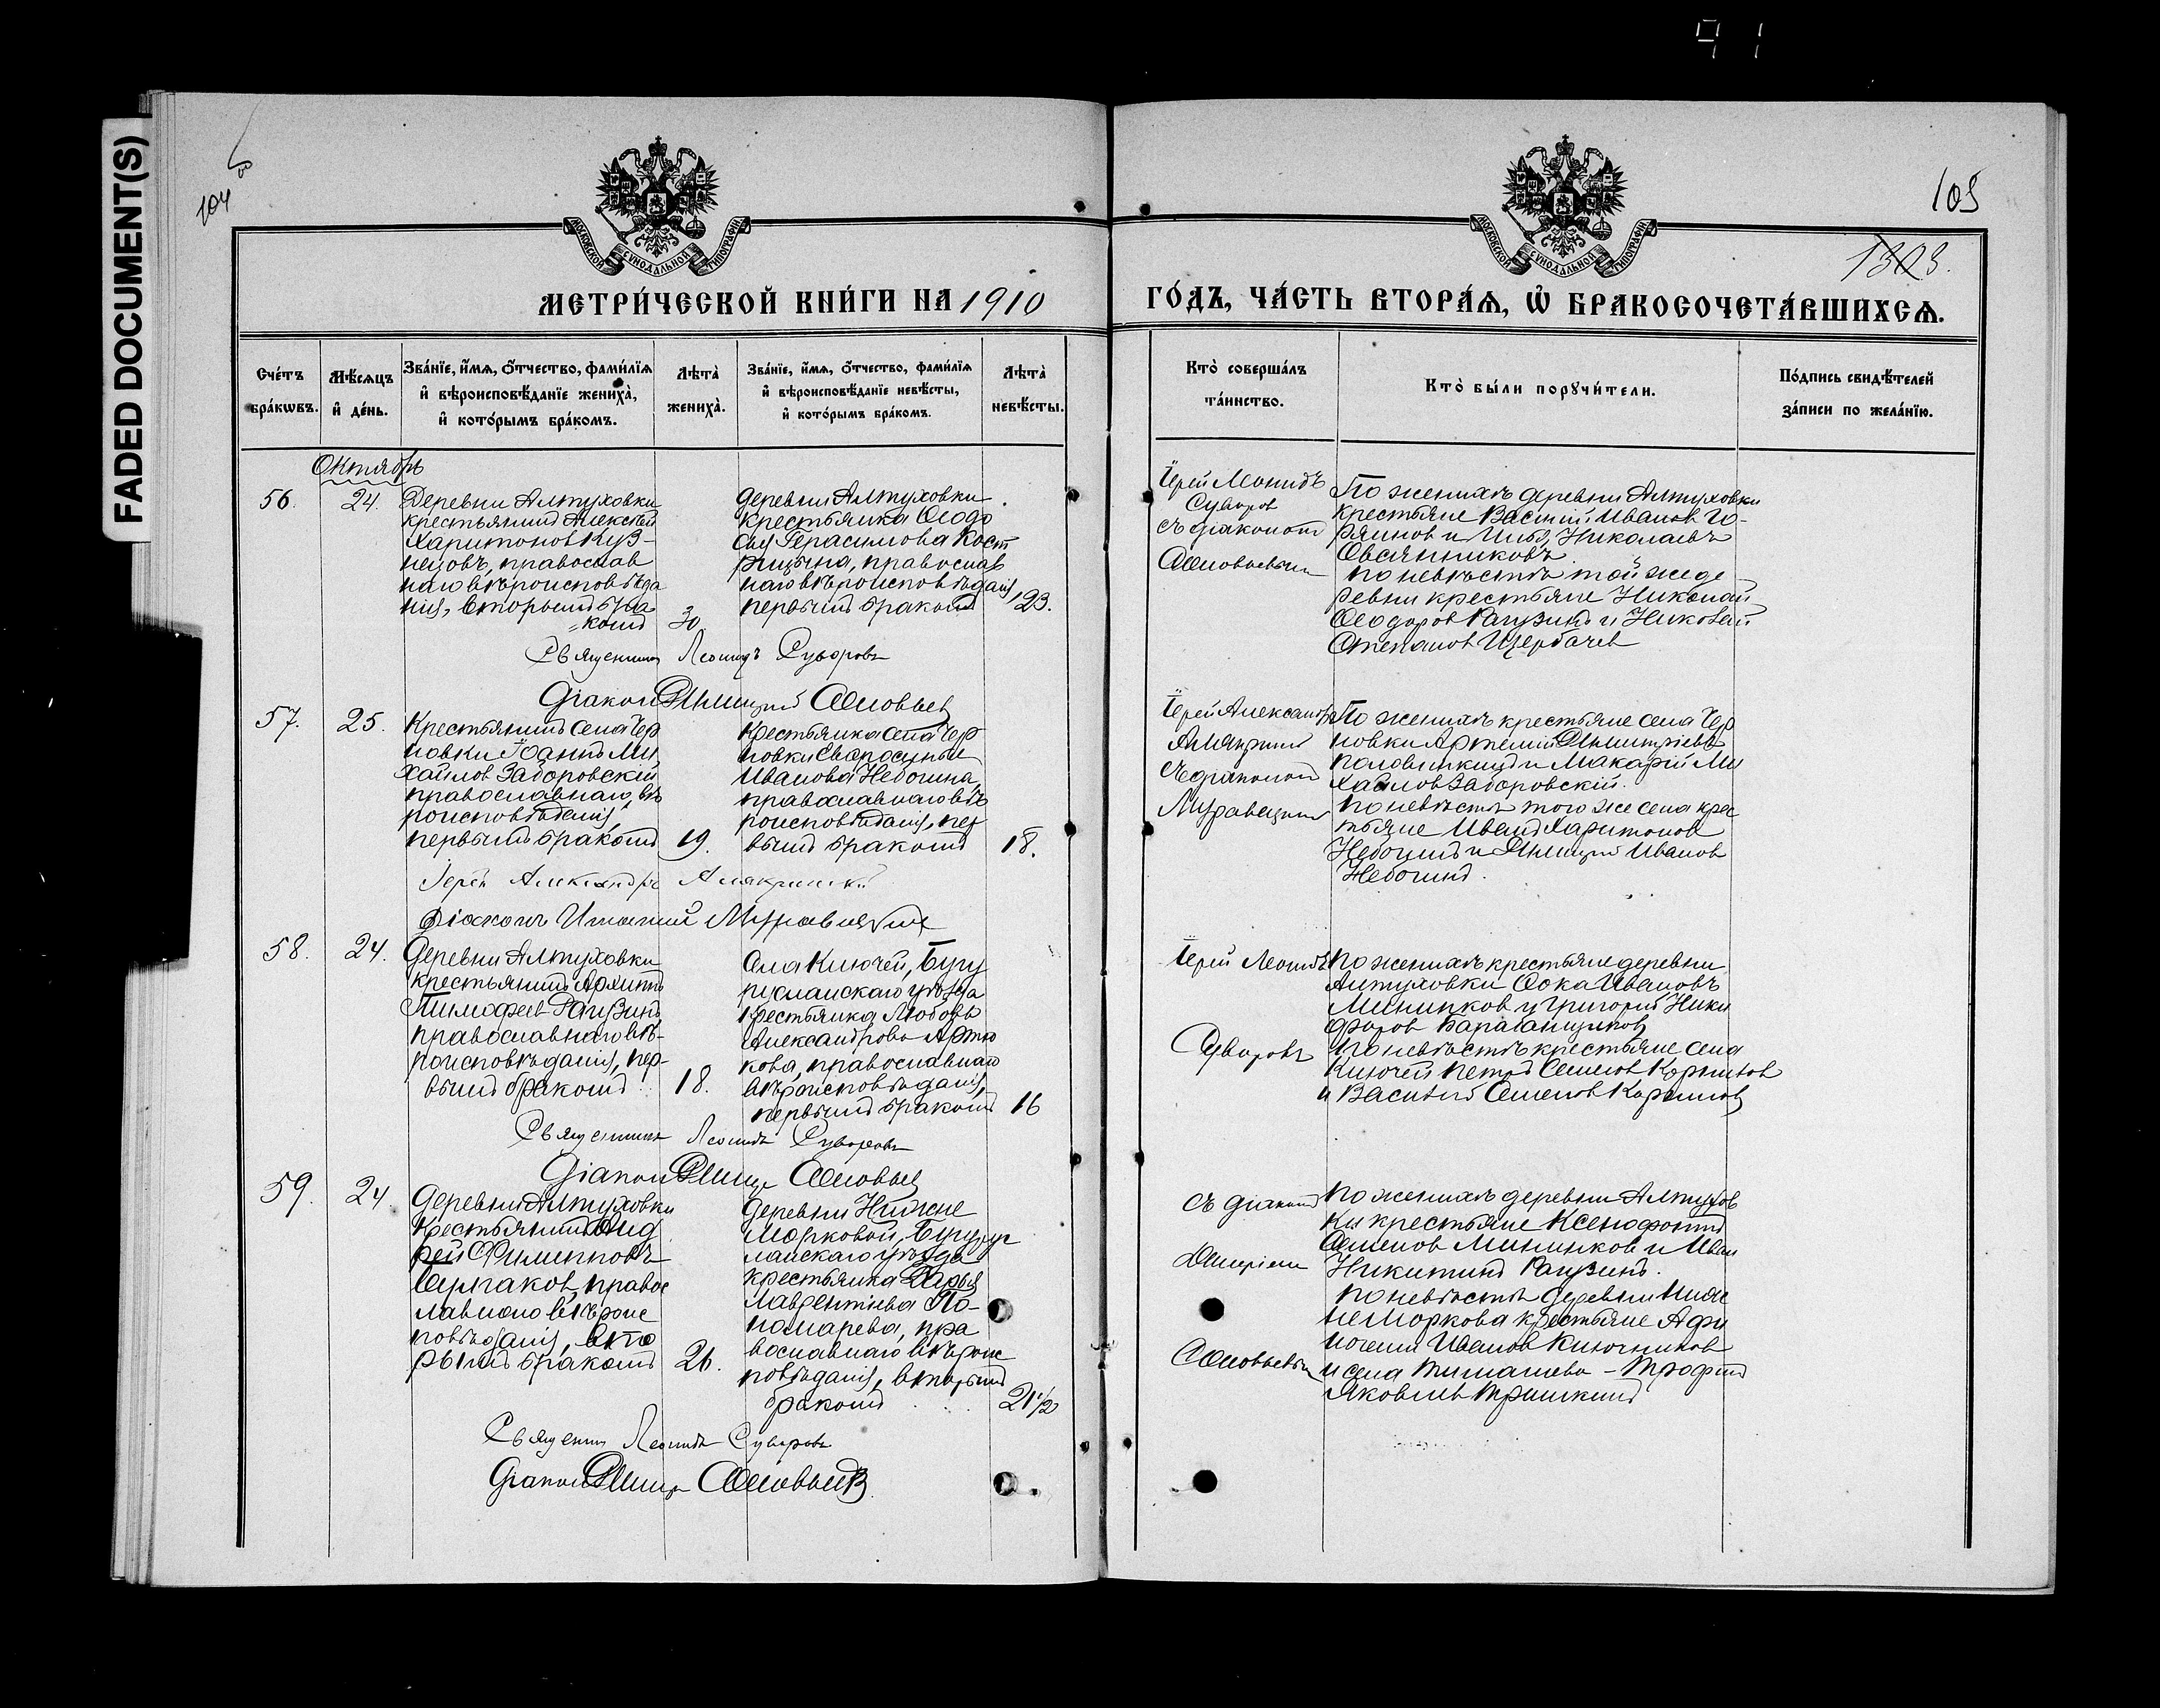 FADED DOCUMENT(S)
91
104 об
105
1303.
МОСКОВСКОЙ СѴНОДАЛЬНОЙ ТИПОГРАФІИ
МОСКОВСКОЙ СѴНОДАЛЬНОЙ ТИПОГРАФІИ
МЕТРИ́ЧЕСКОЙ КНИ́ГИ НА 1910
ГО́ДЪ, ЧА́СТЬ ВТОРА́Я, Ѡ҆ БРАКОСОЧЕТА́ВШИХСЯ.
Сче́тъ бра́кѡвъ.
Мѣ́сяцъ и҆ де́нь.
Зва́нїе, и҆́мя, ѻ҆́тчество, фами́лїя и҆ вѣроисповѣ́данїе жениха̀, и҆ кото́рымъ бра́комъ.
Лѣта̀ жениха̀.
Зва́нїе, и҆́мя, ѻ҆́тчество, фами́лїя и҆ вѣроисповѣ́данїе невѣ́сты, и҆ кото́рымъ бра́комъ.
Лѣта̀ невѣ́сты.
Кто̀ соверша́лъ та́инство.
Кто̀ бы́ли порꙋчи́тели.
По́дпись свидѣ́телей за́писи по жела́нїю.
Октябрь
56.
24.
Деревни Алтуховки
крестьянинъ Алексѣй
Харитоновъ Куз-
нецовъ, православ
наго вѣроисповѣда
нія, вторымъ бра
комъ
30
деревни Алтуховки
крестьянка Ѳеодо
сія Герасимова Кост
рицына, православ
наго вѣроисповѣданія
первымъ бракомъ
23.
Іерей Леонидъ
Суворов
съ діакономъ
Соловьевымъ
По женихѣ деревни Алтуховки
крестьяне Василій Иванов Го-
ряинов и Илья Николаевъ
Овсянниковъ
по невѣстѣ той же де
ревни крестьяне Николай
Ѳеодоров Рагузинъ и Николай
Степанов Щербачев
Священникъ Леонидъ Суворовъ
Діаконъ Димитрій Соловьев
57.
25.
Крестьянинъ села Чер
новки Іоаннъ Ми
хайлов Заборовскій
православнаго вѣ
роисповѣданія,
первымъ бракомъ
19.
Крестьянка села Чер
новки Евфросинья
Иванова Небогина,
православнаго вѣ
роисповѣданія, пер
вымъ бракомъ
18.
Іерей Александръ
Алякринскій
съ діакономъ
По женихѣ крестьяне села Чер
новки Артемій Димитріевъ
Половинкинъ и Макарій Ми
хайлов Заборовскій.
по невѣстѣ того же села крес
тьяне Иванъ Харитонов
Небогинъ и Димитрій Иванов
Небогинъ.
Іерей Александръ Алякринскій
58.
24.
Деревни Алтуховки
крестьянинъ Архиппъ
Тимофеев Рагузинъ
православнаго вѣ-
роисповѣданія, пер-
вымъ бракомъ
18.
Села Ключей, Бугу
русланскаго уѣзда
крестьянка Любовь
Александрова Артю
кова, православнаго
вѣроисповѣданія,
первымъ бракомъ
16
Іерей Леонидъ
Суворовъ
По женихѣ крестьяне деревни
Алтуховки Ѳока Ивановъ
Мининков и Григорій Ники
форов Барабанщиков
По невѣстѣ крестьяне села
Ключей Петръ Семенов Корнилов
и Василій Семенов Корнилов
Священникъ Леонидъ Суворовъ
Діаконъ Димитрій Соловьев
59.
24
Деревни Алтуховки
крестьянинъ Анд
рей Филипповъ
православ
лавнаго вѣроис
повѣданія, вто
рымъ бракомъ
26.
деревни Нижне
Морковой, Бугурус
ланскаго уѣзда
крестьянка Дарья
Лаврентіева По-
номарева, пра
вославнаго вѣроис
повѣданія, вторымъ
бракомъ
21 1/2
съ діакономъ
Димитріемъ
Соловьевымъ
По женихѣ деревни Алтухов
ки крестьяне Ксенофонтъ
Семенов Мининков и Иван
Никитинъ Рагузинъ.
по невѣстѣ деревни Ниж
неморкова крестьяне Афи
ногенъ Иванов Ключников
и села Тимашево - Трофимъ
Яковлев Тришкинъ
Священникъ Леонидъ Суворовъ
Діаконъ Димитрій Соловьевъ